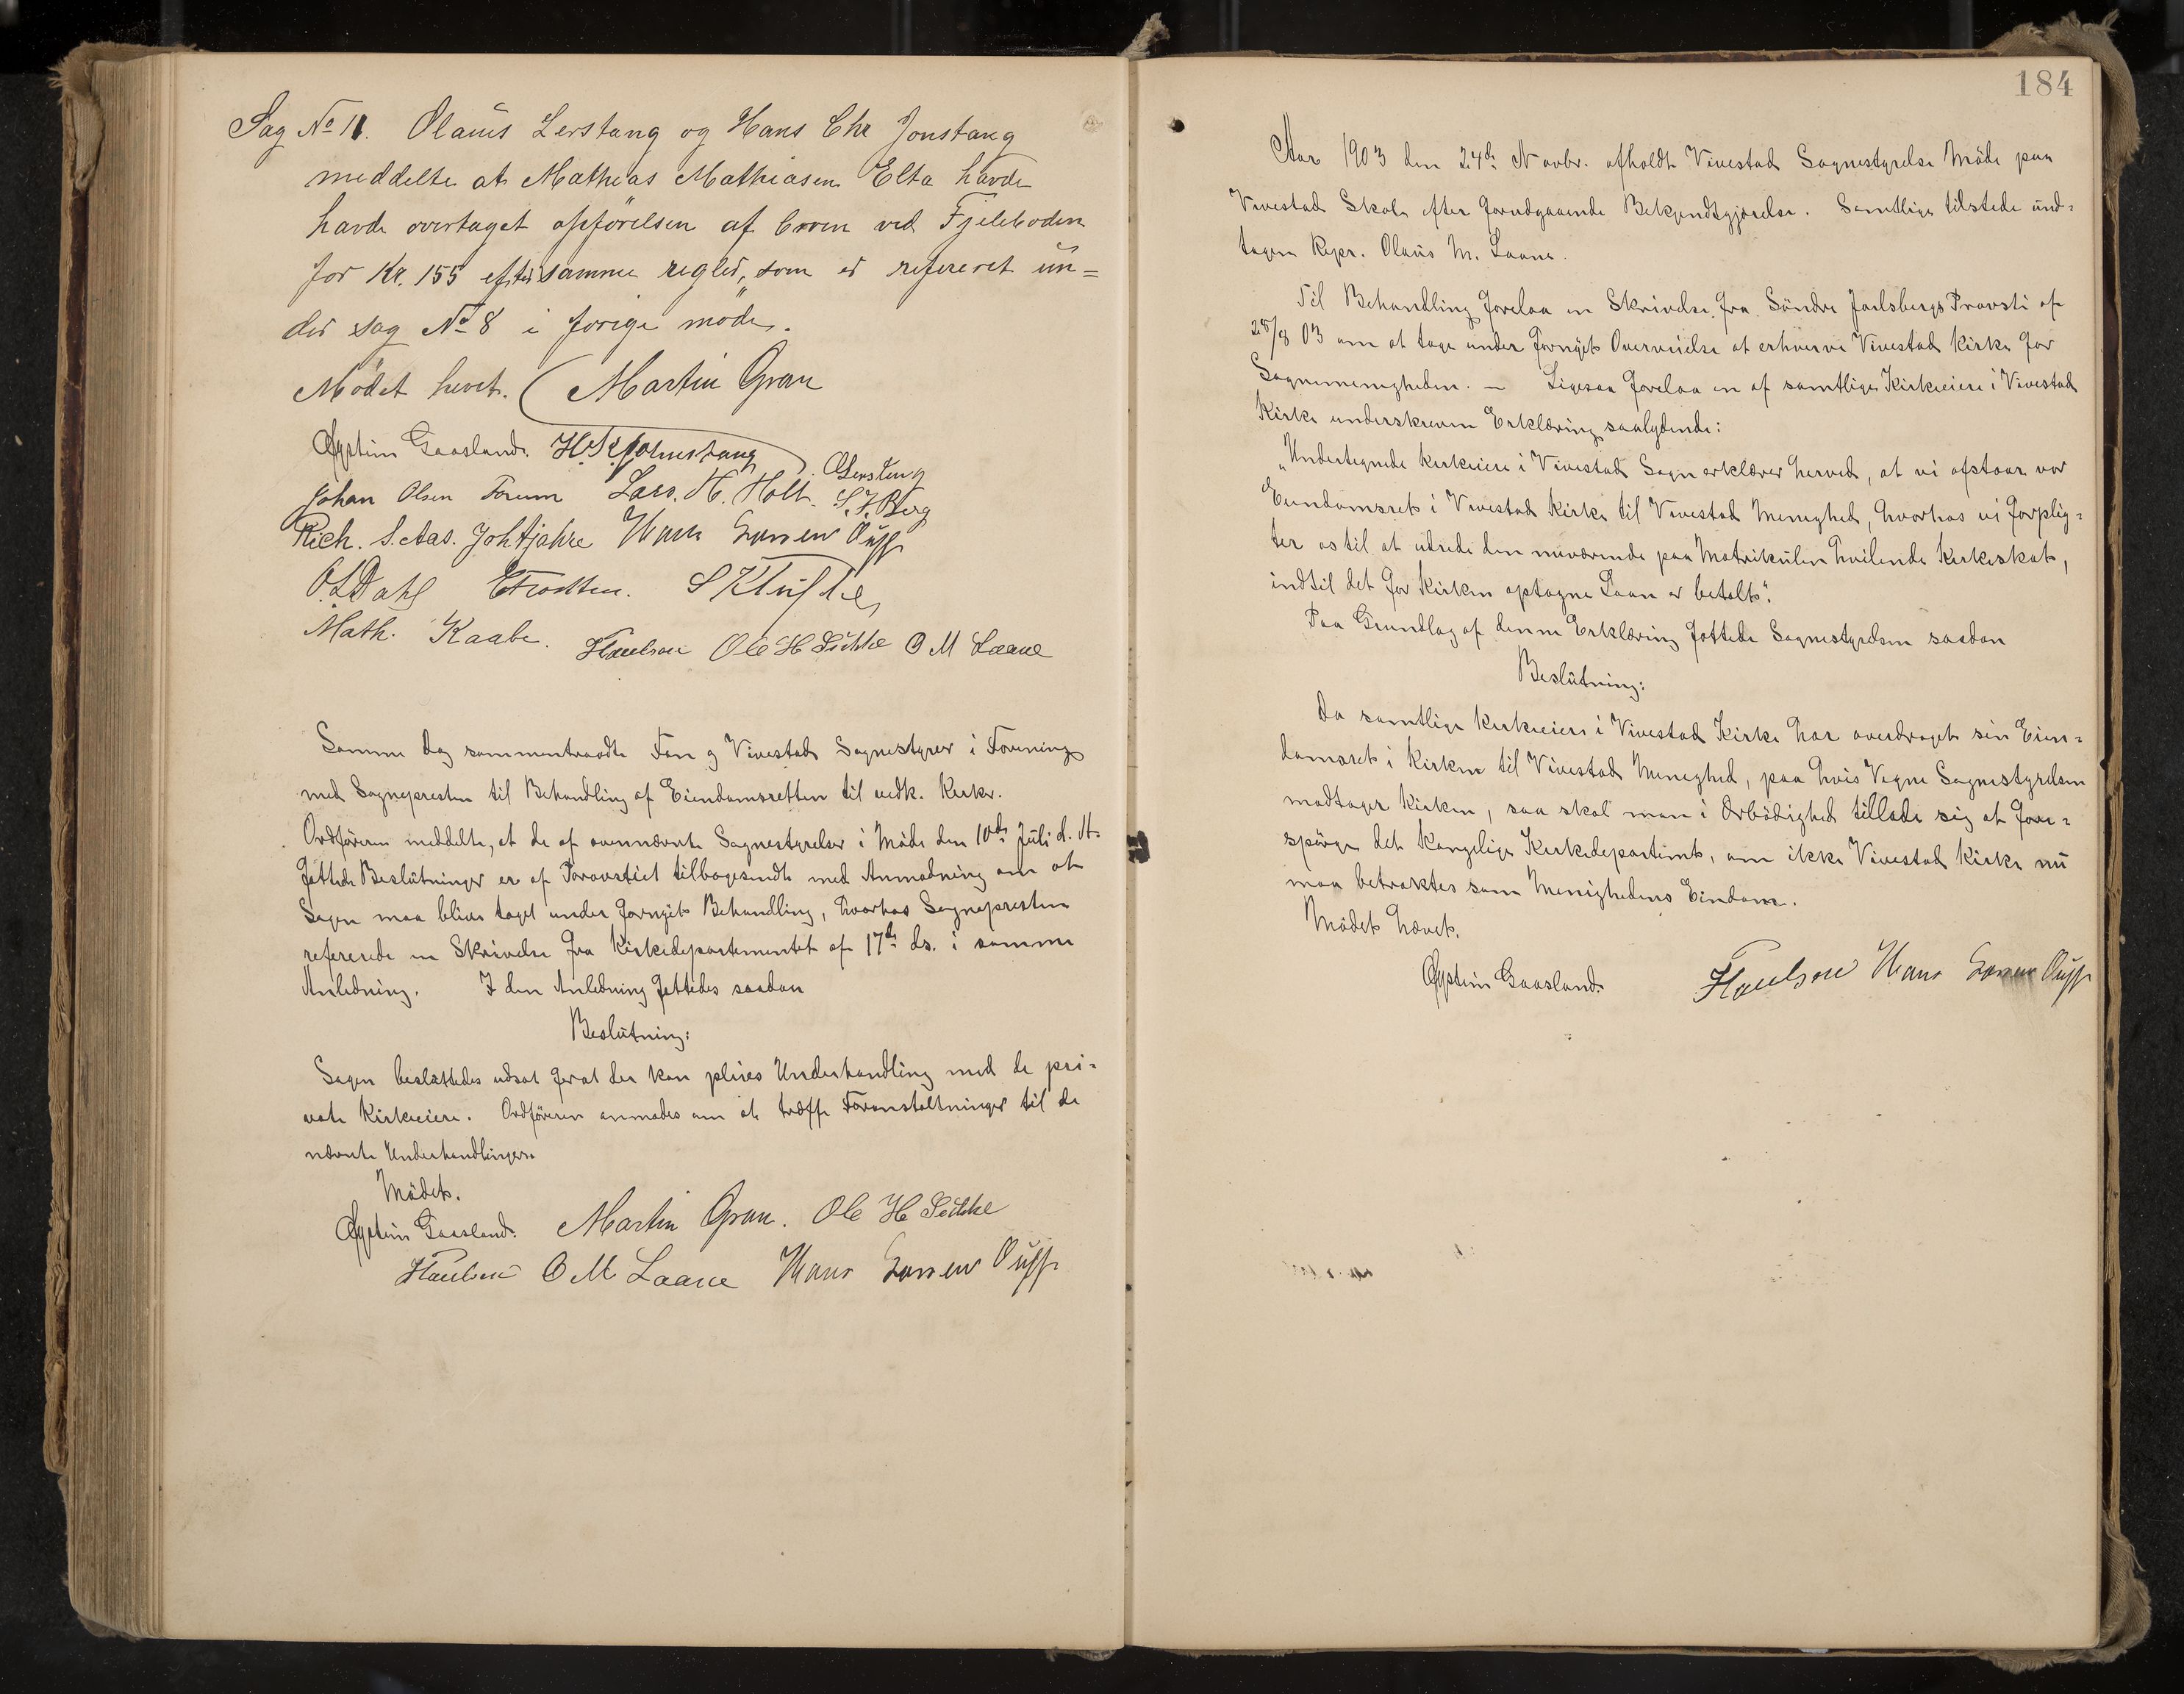 Sag No 11. Olaus Lerstang og Hans Chr Jonstang
meddelte at Mathias Mathiasen Elta havde
havde overtaget opförelsen af broen ved Fjeleboden
for Kr. 155 efter samme regler, som er refereret un=
der sag No 8 i forige möde.
Mödet hevet. Martin Gran
Øystein Gaasland. H. Kr. Johnstang
OLerstang
Johan Olsen Forum Lars. H. Holt. S. F. Berg
Rich. S. Aas. Joh Fjahre Hans Larsen Ruff
O. L Dahl ETrolsten. S Klufte
Math. Kaabe. HPaulsen Ole H Lickke O M Laane
Samme dag sammentraadte Fon og Vivestad Sognestyrer i Forening
med Sognepresten til Behandling af Eiendomsretten til vedk. Kirker.
Ordföreren meddelte, at de af ovennævnte Sognestyrelser i Möde den 10de Juli d. A.
fattede Beslutninger er af Provstiet tilbagesendt med Anmodning om at
Sagen maa blive taget under fornyet Behandling, hvorhos Sognepresten
refererede en Skrivelse fra Kirkedepartementet af 17de ds. i samme
Anledning. I den Anledning fattedes saadan
Beslutning:
Sagen besluttedes udsat forat der kan pleies Underhandling med de pri=
vate Kirkeeiere. Ordföreren anmodes om at træffe Foranstaltninger til de
nævnte Underhandlinger.
Mödet.
Øystein Gaasland. Martin Gran. Ole H Lickke
HPaulsen O M Laane Hans Larsen Ruff
184
Aar 1903 den 24de Novbr. afholdt Vivestad Sognestyrelse Möde paa
Vivestad Skole efter forudgaaende Bekjendtgjörelse. Samtlige tilstede und=
tagen Repr. Olaus M. Laane.
Til Behandling forelaa en Skrivelse fra Söndre Jarlsbergs Provsti af
25/8 03 om at tage under fornyet Overveielse at erhverve Vivestad Kirke for
Sognemenigheden. — Ligesaa forelaa en af samtlige Kirkeeiere i Vivestad
Kirke underskreven Erklæring saalydende:
„Undertegnede Kirkeeiere i Vivestad Sogn erklærer herved, at vi afstaar vor
Eiendomsret i Vivestad Kirke til Vivestad Menighed, hvorhos vi forplig=
ter os til at udrede den nuværende paa Matrikulen hvilende Kirkeskat,
indtil det for Kirken optagne Laan er betalt“.
Paa Grundlag af denne Erklæring fattede Sognestyrelsen saadan
Beslutning:
Da samtlige Kirkeeiere i Vivestad Kirke har overdraget sin Eien=
domsret i Kirken til Vivestad Menighed, paa hvis Vegne Sognestyrelsen
modtager Kirken, saa skal man i Ærbödighed tillade sig at fore=
spörge det Kongelige Kirkedepartemt, om ikke Vivestad Kirke nu
maa betraktes som Menighedens Eiendom.
Mödet hævet.
Øystein Gaasland. HPaulsen Hans Larsen Ruff